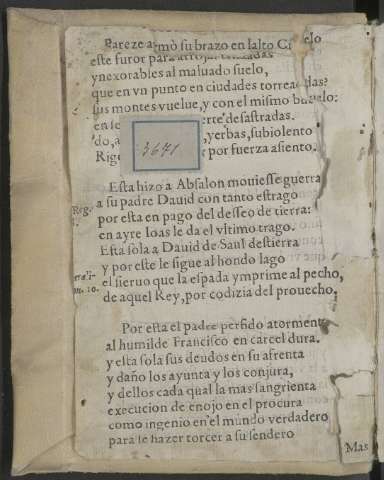 Pareze armò su brazo en lalto Cielo
este furor para
ynexorables al maluado suelo,
que en vn punto en ciudades torreadas?
sus montes vuelue, y con el mismo buelo:
en erte desastradas.
do, a , yerbas, subiolento
Rig por fuerza asiento.
3671
Esta hizo a Absalon mouiesse guerra
a su padre Dauid con tanto estrago
por esta en pago del desseo de tierra:
en ayre Ioas le da el vltimo trago.
Esta sola a Dauid de Saul destierra
y por este le sigue al hondo lago
el sieruo que la espada ymprime al pecho,
de aquel Rey, por codizia del prouecho,
Reg.
m. 10.
Por esta el padre perfido atormenta
al humilde Francisco en carcel dura.
y esta sola sus deudos en su afrenta
y daño los ayunta y los conjura,
y dellos cada qual la mas sangrienta
execucion de enojo en el procura
como ingenio en'el mundo verdadero
para le hazer torcer a su sendero
Mas